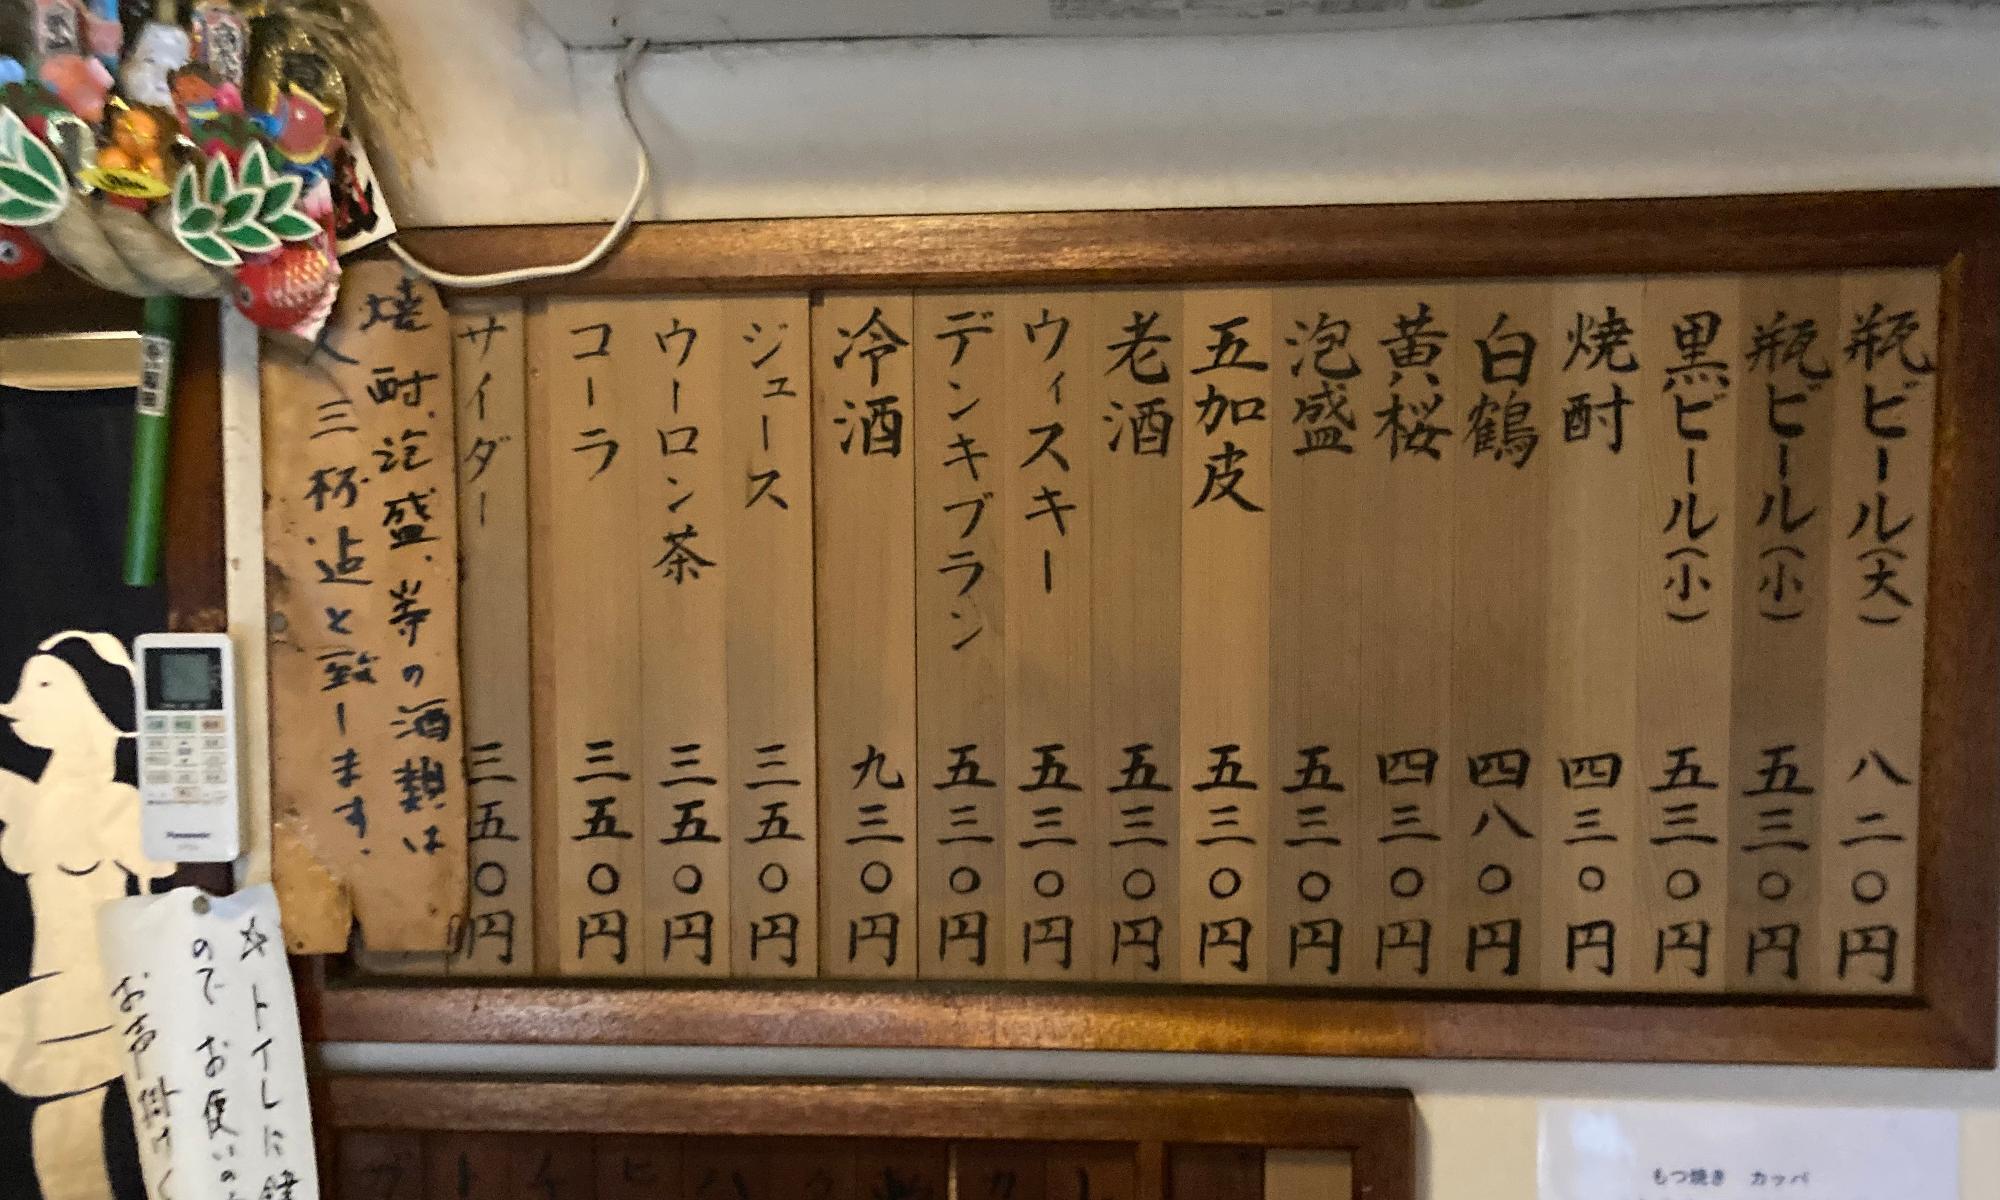 瓶ビール(大) 八二〇円
瓶ビール(小) 五三〇円
黒ビール(小) 五三〇円
焼酎 四三〇円
白鶴 四八〇円
黄桜 四三〇円
泡盛 五三〇円
五加皮 五三〇円
老酒 五三〇円
ウィスキー 五三〇円
デンキブラン 五三〇円
冷酒 九三〇円
ジュース 三五〇円
ウーロン茶 三五〇円
コーラ 三五〇円
サイダー 三五〇円
焼酎、泡盛、等の酒類は
人三杯迄と致します。
☆トイレに鍵
ので お使いの
お声掛けく
Panasonic
もつ焼き カッパ